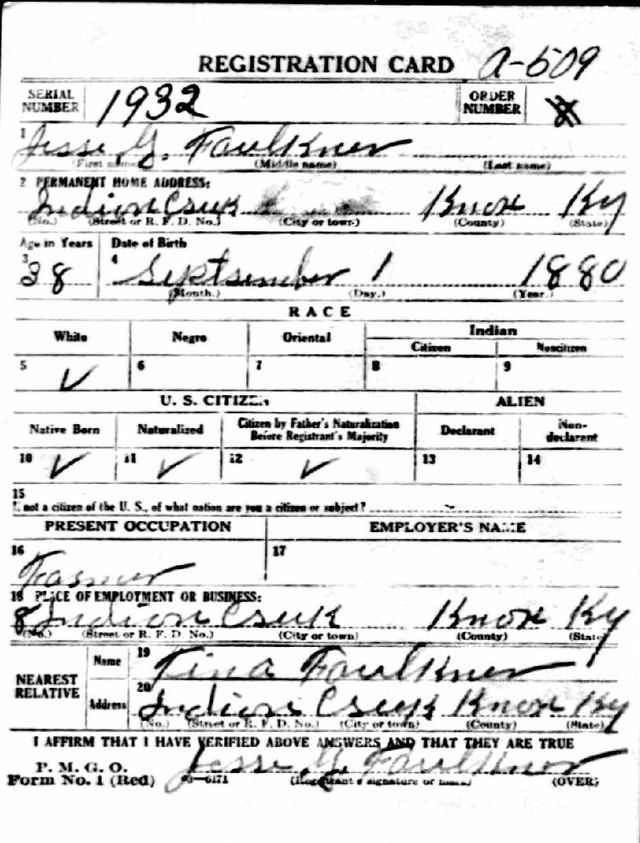 REGISTRATION CARD A-509
SERIAL NUMBER 1932 ORDER NUMBER
1 Jesse G. Faulkner
(First name) (Middle name) (Last name)
2 PERMANENT HOME ADDRESS:
Indion Creek Knox Ky
(No.) (Street or R. F. D. No.) (City or town) (County) (State)
Age in Years Date of Birth
3 38 4 September 1 1880
(Month.) (Day.) (Year.)
RACE
White Negro Oriental Indian
Citizen Noncitizen
5 ✓ 6 7 8 9
U. S. CITIZEN ALIEN
Native Born Naturalized Citizen by Father's Naturalization Before Registrant's Majority Declarant Non-declarant
10 ✓ 11 ✓ 12 ✓ 13 14
15
If not a citizen of the U. S., of what nation are you a citizen or subject?
PRESENT OCCUPATION EMPLOYER'S NAME
16 Farmer 17
18 PLACE OF EMPLOYMENT OR BUSINESS:
Indion Creek Knox Ky
(No.) (Street or R. F. D. No.) (City or town) (County) (State)
NEAREST RELATIVE Name 19 Tina Faulkner
Address 20 Indion Creek Knox Ky
(No.) (Street or R. F. D. No.) (City or town) (County) (State)
I AFFIRM THAT I HAVE VERIFIED ABOVE ANSWERS AND THAT THEY ARE TRUE
P. M. G. O.
Form No. 1 (Red) Jesse G. Faulkner
03-6171 (Registrant's signature or mark) (OVER)